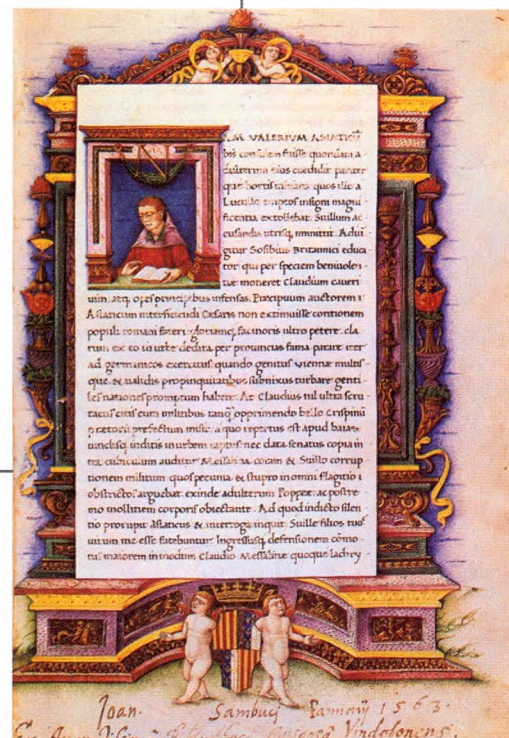 M VALERIVM ASIATICŪ
bis consulem fuisse quondam a
dulterum eius credidit pariter
que hortis inhians quos ille a
Lucullo coeptos insigni magni
ficentia extollebat. Suillum ac
cusandis utrisq; immittit. Adiu
gitur Sosibius Britannici educa
tor qui per speciem beniuolen
tiae moneret Claudium cauere
uim atq; opes principibus infensas. Praecipuum auctorem
Asiaticum interficiendi Caesaris non extimuisse contionem
populi romani fateri gloriamq; facinoris ultro petere. cla
rum ex eo in urbe didita per prouincias fama parare iter
ad germanicos exercitus quando genitus Viennae multis
que & ualidis propinquitatibus subnixus turbare genti
les nationes promptum haberet. At Claudius nil ultra scru
tatus citis cum militibus tanq̄ opprimendo bello Crispinū
praetorii praefectum misit a quo repertus est apud baias
uinclisq; inditis in urbem raptus nec data senatus copia in
tra cubiculum auditur Messalina coram & Suillo corrup
tionem militum quos pecunia & stupro in omne flagitiū
obstrictos arguebat exinde adulterium Poppeae ac postre
mo mollitiem corporis obiectante. Ad quod uicto silen
tio prorupit Asiaticus & interroga inquit Suille filios tuos
uirum me esse fatebuntur Ingressusq; defensionem cōmo
tus maiorem in modum Claudio Messalinae quoque lachry
Joan. Sambuci Pannonij 1563.
Vindobonens.